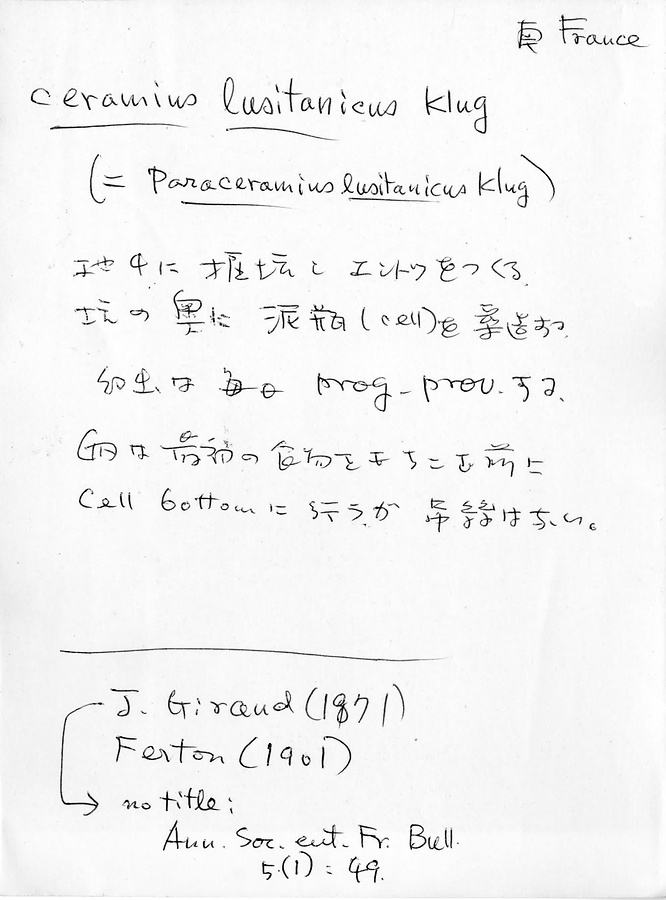 France
Ceramius lusitanicus Klug
(= Paraceramius lusitanicus Klug)
地中に掘坑しエントツをつくる.
坑の奥に泥瓶(cell)を築造する.
幼虫は毎日 prog-prov.する.
卵は最初の食物をもちこむ前に
Cell bottomに行うが吊絲はない。
J. Giraud (1871)
Ferton (1901)
no title;
Ann. Soc. ent. Fr. Bull.
5.(1) : 49.